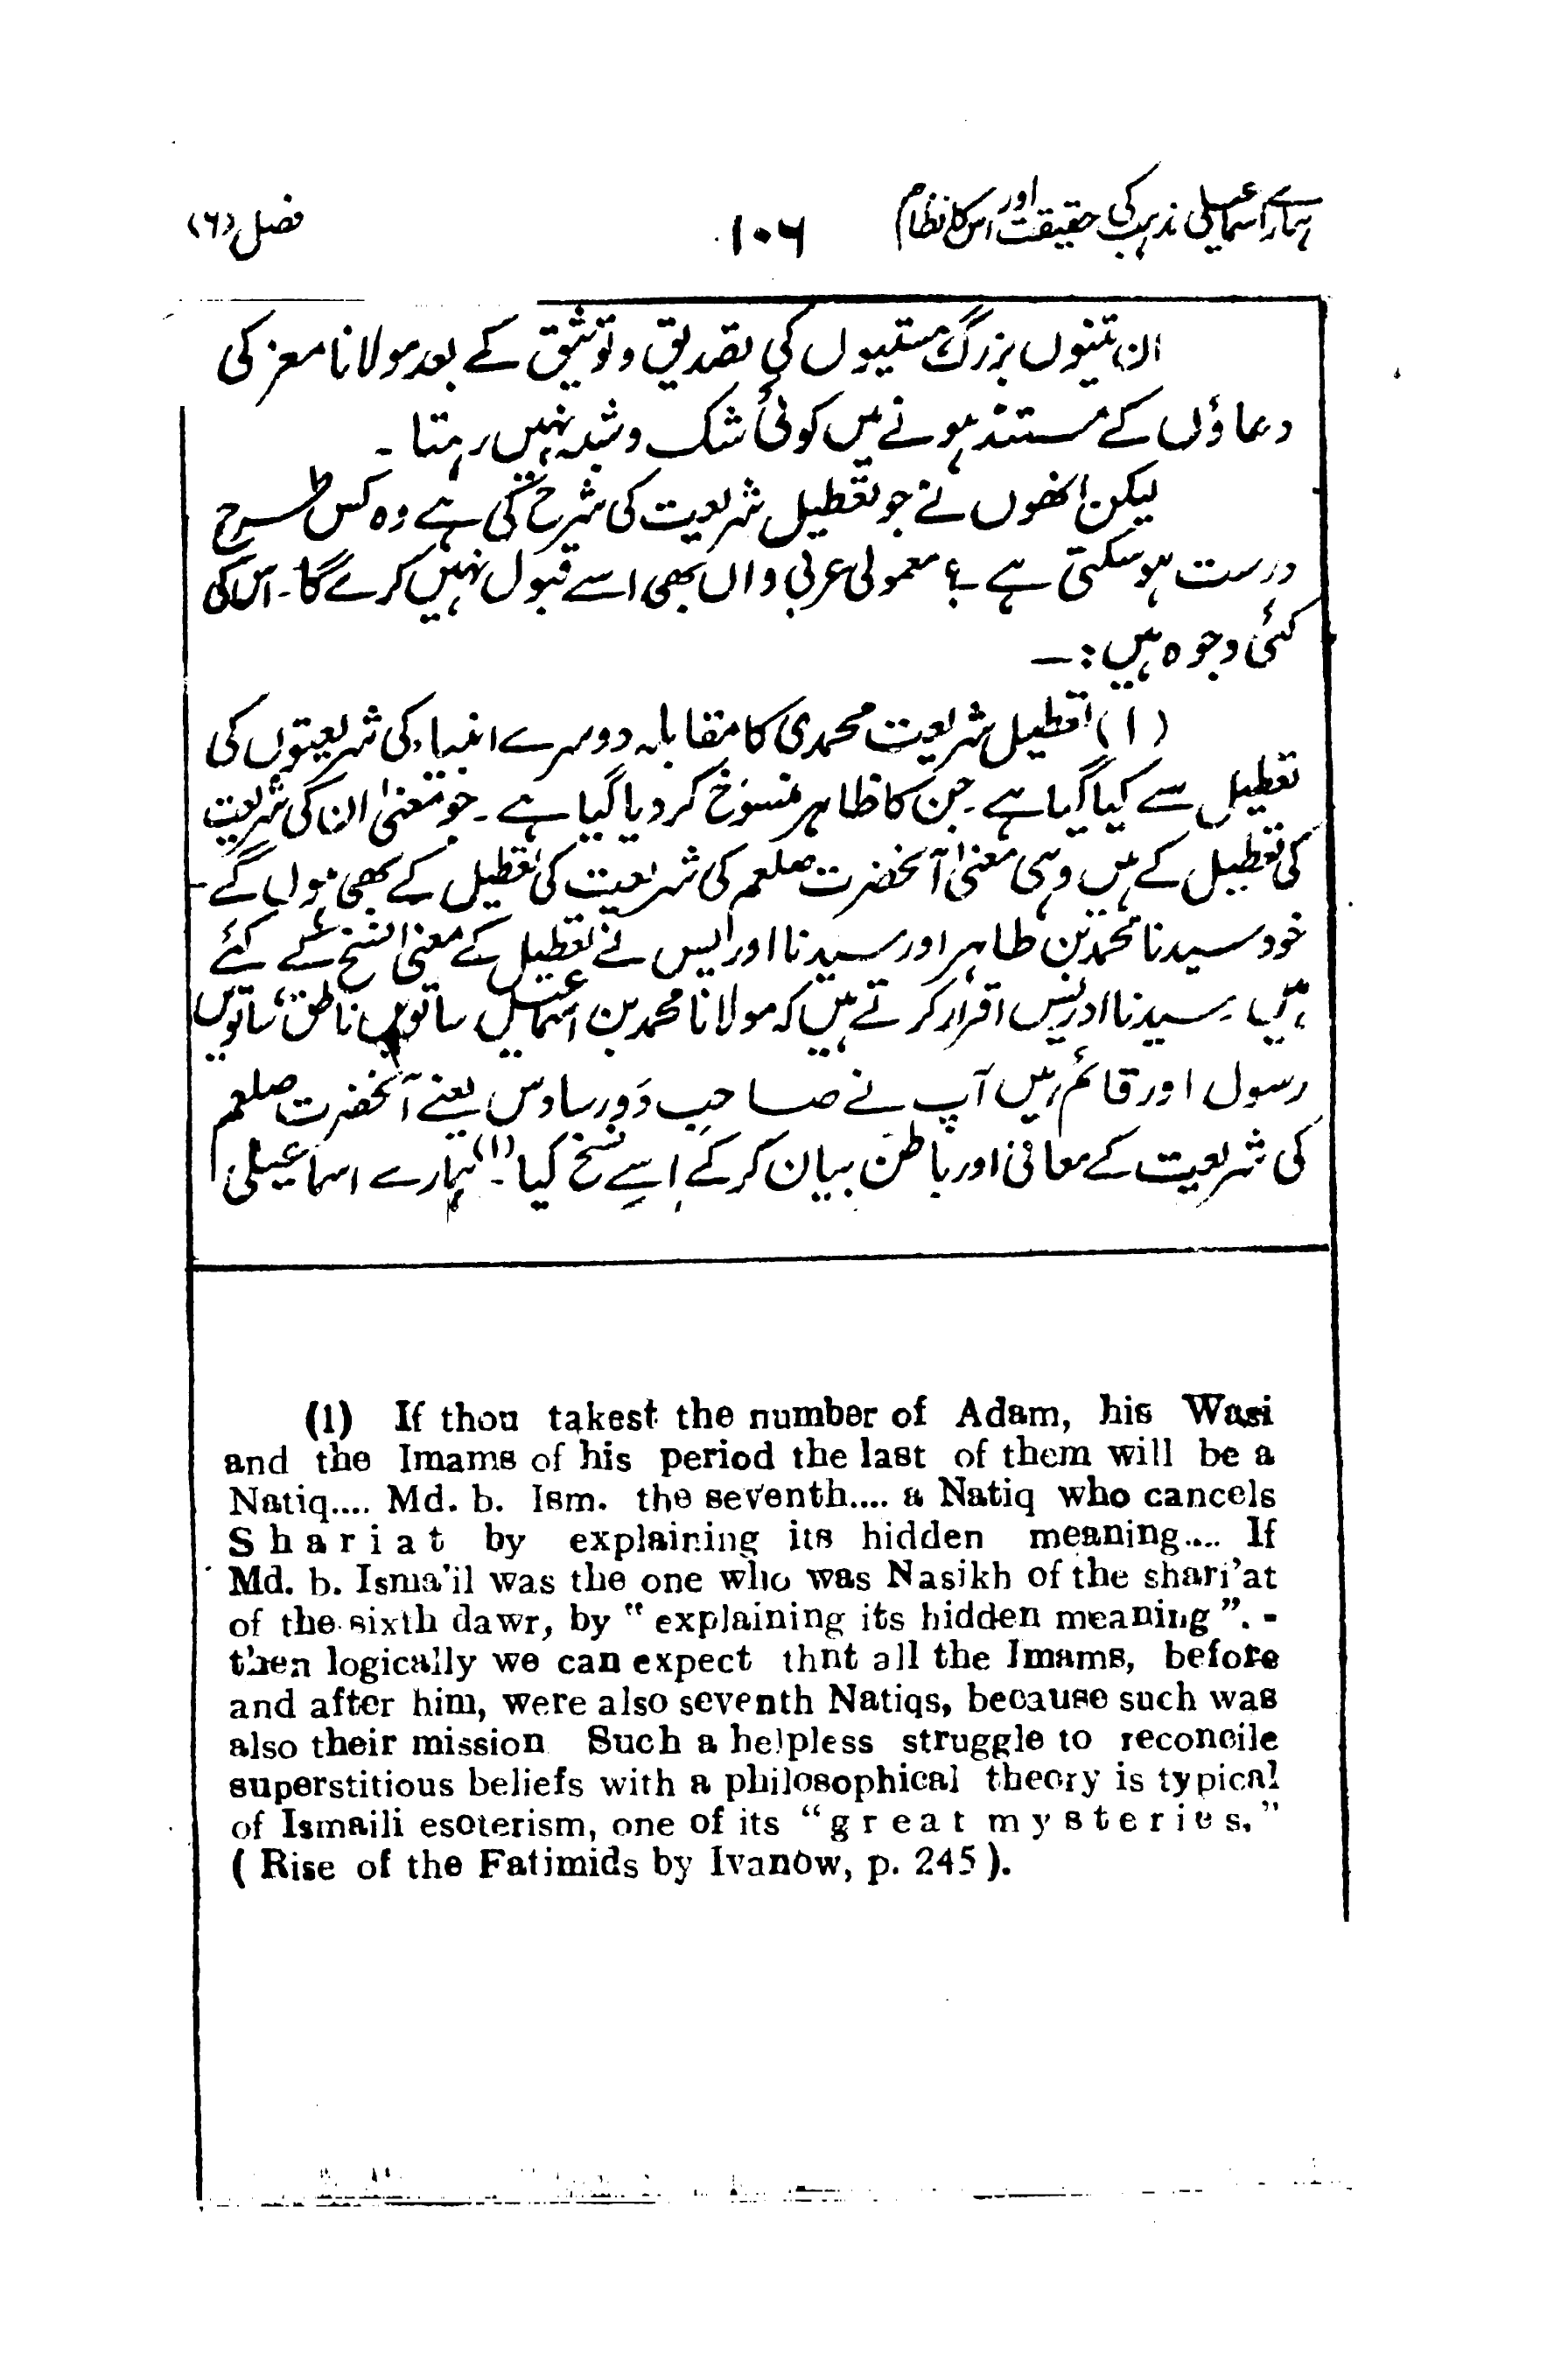 ہمارے اسماعیلی مذہب کی حقیقت اور اس کا نظام ۱۰۶ فصل (۶)
ان تینوں بزرگ ہستیوں کی تصدیق و توثیق کے بعد مولانا معز کی
دعاؤں کے مستند ہونے میں کوئی شک و شبہ نہیں رہتا ۔
لیکن انھوں نے جو تعطیل شریعت کی شرح کی ہے وہ کس طرح
درست ہو سکتی ہے ؟ معمولی عربی داں بھی اسے قبول نہیں کرے گا ۔ اس کی
کئی وجوہ ہیں :۔
(۱) تعطیل شریعت محمدی کا مقابلہ دوسرے انبیاء کی شریعتوں کی
تعطیل سے کیا گیا ہے ۔ جن کا ظاہر منسوخ کر دیا گیا ہے ۔ جو معنیٰ ان کی شریعت
کی تعطیل کے ہیں وہی معنیٰ آنحضرت صلعم کی شریعت کی تعطیل کے بھی ہوں گے ۔
خود سیدنا محمد بن طاہر اور سیدنا ادریس نے تعطیل کے معنی النسخ کے کئے
ہیں ۔ سیدنا ادریس اقرار کرتے ہیں کہ مولانا محمد بن اسماعیل ساتویں ناطق، ساتویں
رسول اور قائم ہیں آپ نے صاحبِ دَور سادس یعنے آنحضرت صلعم
کی شریعت کے معانی اور باطن بیان کر کے اِسے نسخ کیا ۔(۱) ہمارے اسماعیلی
(1) If thou takest the number of Adam, his Wasi
and the Imams of his period the last of them will be a
Natiq.... Md. b. Ism. the seventh.... a Natiq who cancels
Shariat by explaining its hidden meaning.... If
Md. b. Isma'il was the one who was Nasikh of the shari'at
of the sixth dawr, by "explaining its hidden meaning". -
then logically we can expect thnt all the Imams, before
and after him, were also seventh Natiqs, because such was
also their mission Such a helpless struggle to reconcile
superstitious beliefs with a philosophical theory is typical
of Ismaili esoterism, one of its "great mysteries."
( Rise of the Fatimids by Ivanow, p. 245 ).